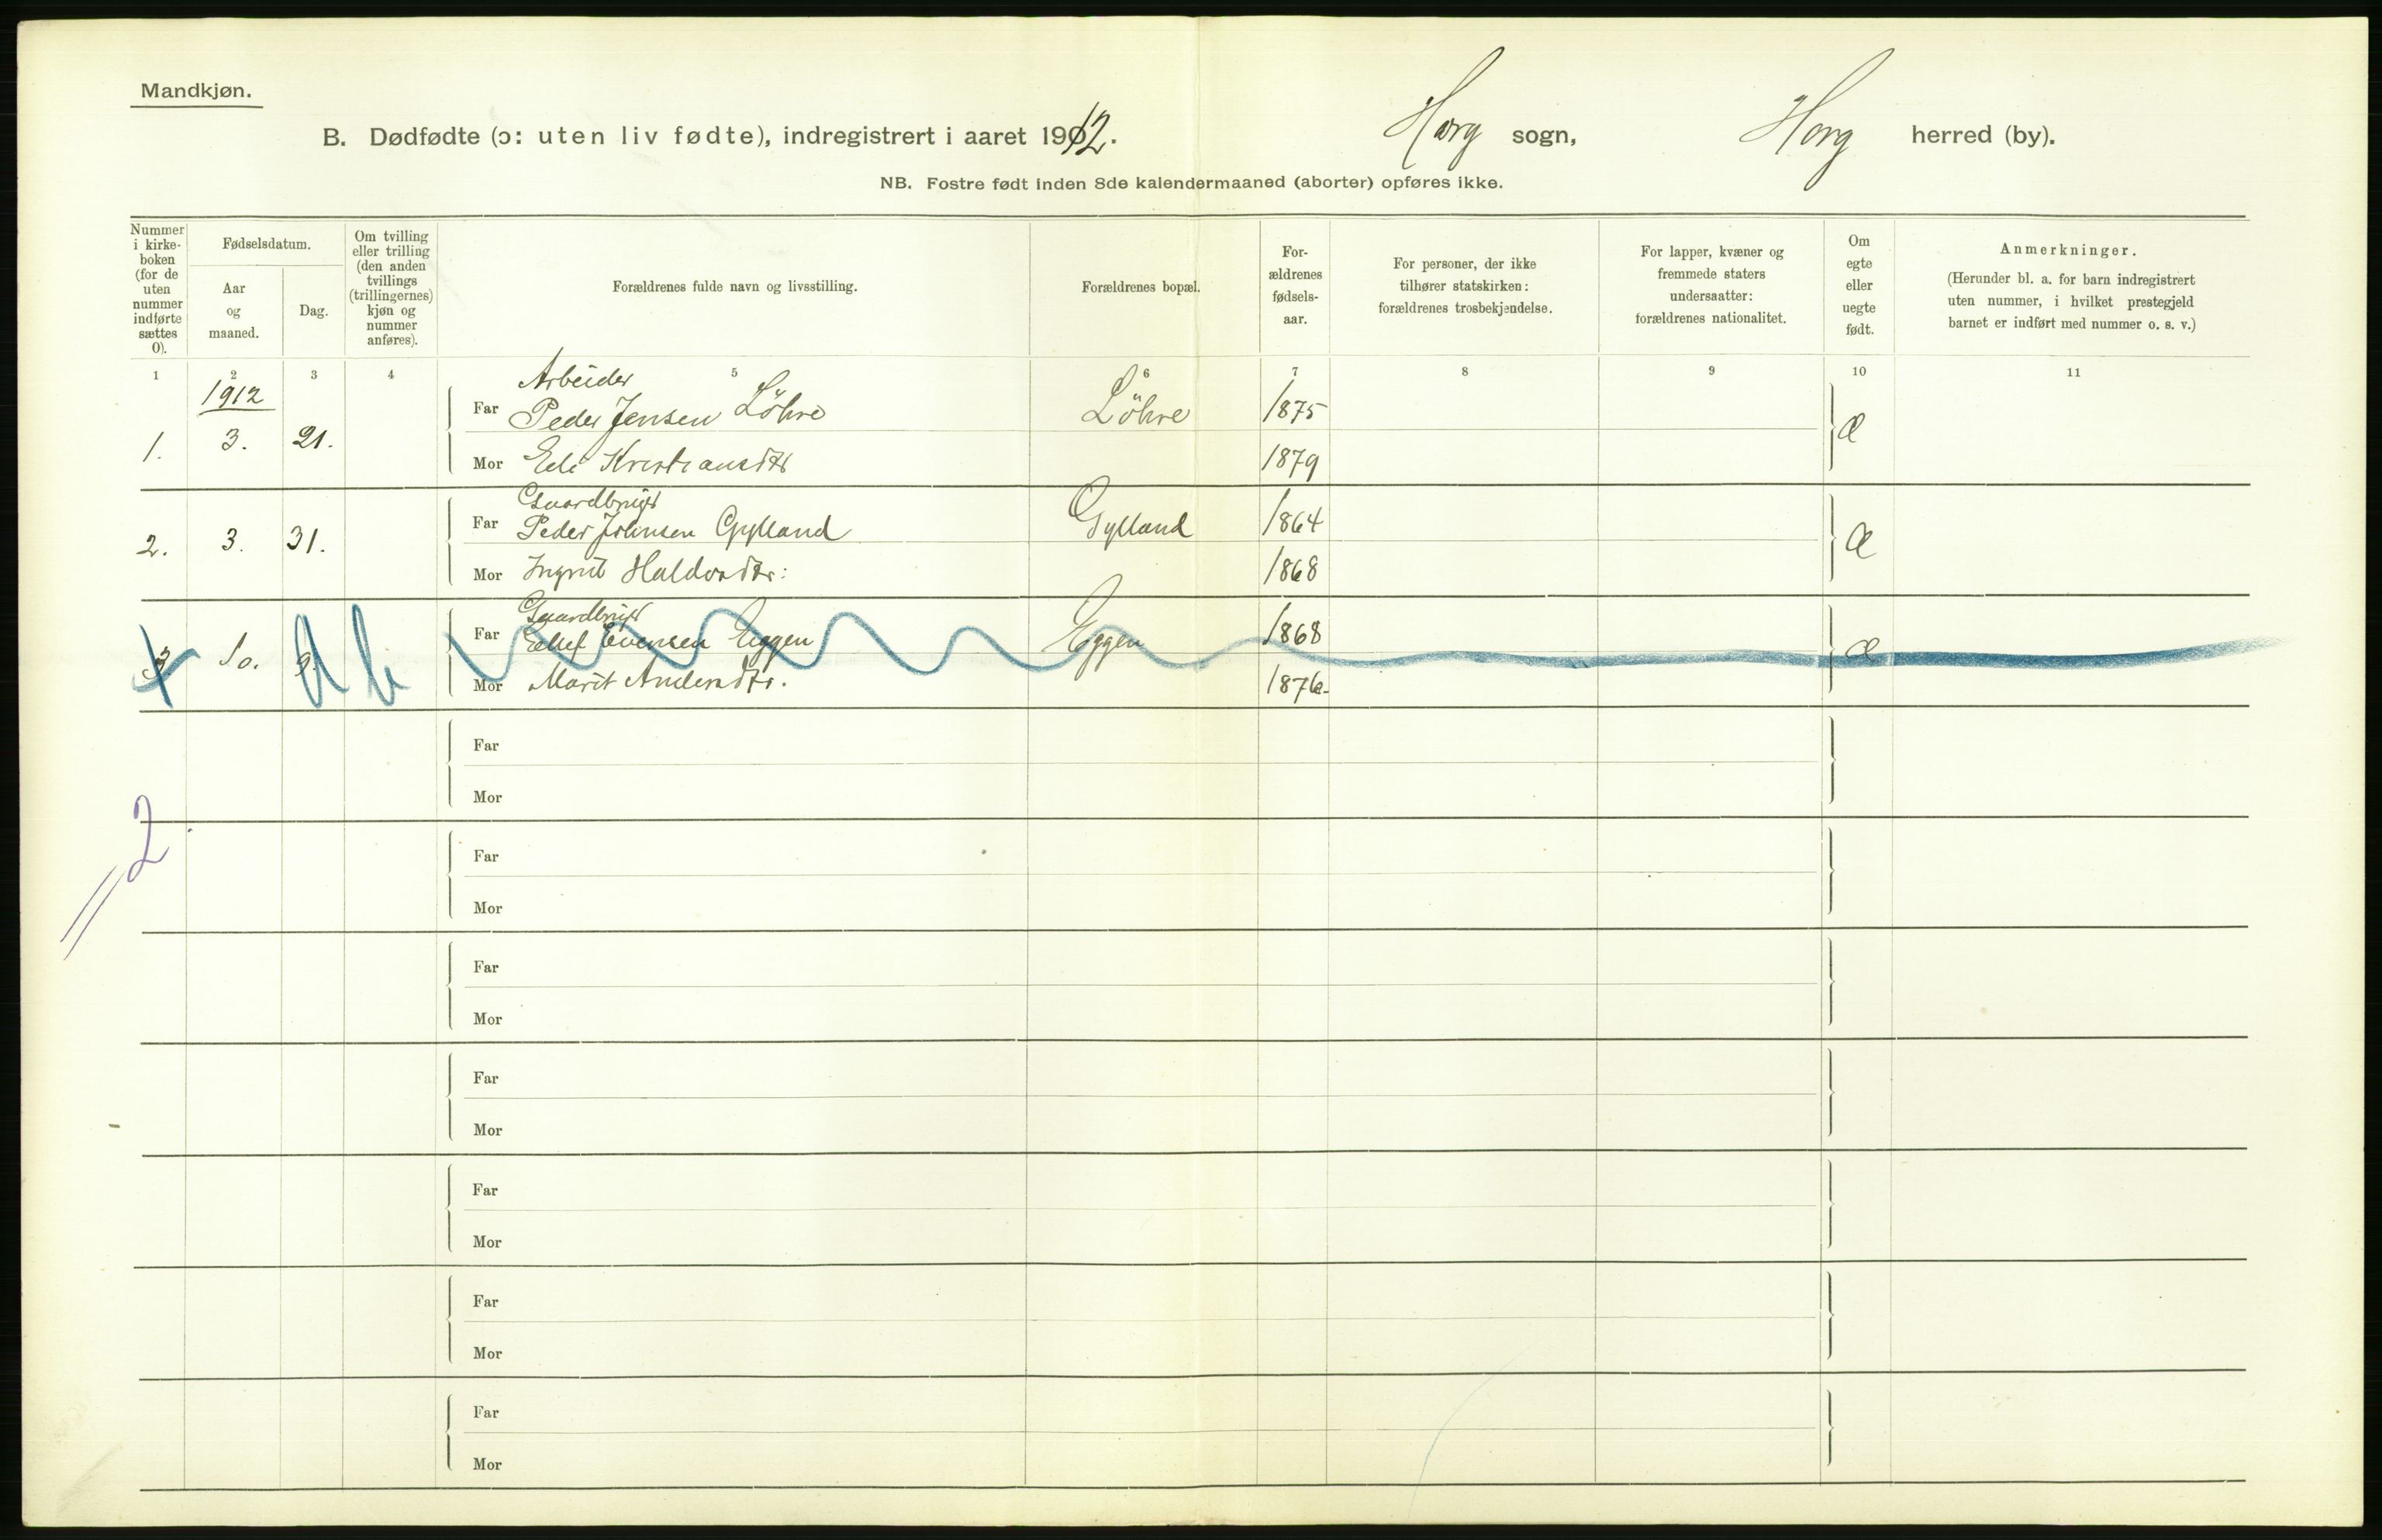 Mandkjøn.
B. Dødfødte (ɔ: uten liv fødte), indregistrert i aaret 1912. Horg sogn, Horg herred (by).
NB. Fostre født inden 8de kalendermaaned (aborter) opføres ikke.
Nummer i kirke-boken (for de uten nummer indførte sættes 0).
Fødselsdatum.
Aar og maaned.
Dag.
Om tvilling eller trilling (den anden tvillings (trillingernes) kjøn og nummer anføres).
Forældrenes fulde navn og livsstilling.
Forældrenes bopæl.
For-ældrenes fødsels-aar.
For personer, der ikke tilhører statskirken: forældrenes trosbekjendelse.
For lapper, kvæner og fremmede staters undersaatter: forældrenes nationalitet.
Om egte eller uegte født.
Anmerkninger.
(Herunder bl. a. for barn indregistrert uten nummer, i hvilket prestegjeld barnet er indført med nummer o. s. v.)
1 2 3 4 5 6 7 8 9 10 11
1912
Arbeider
1. 3. 21. Far Peder Jensen Löhre Löhre 1875 Æ
Mor Eli Kristiansdtr 1879
Gaardbruger
2. 3. 31. Far Peder Johnsen Gylland Gylland 1864 Æ
Mor Ingrid Haldordtr: 1868
Gaardbruger
3 10. 9. Far Evensen Eggen Eggen 1868 Æ
Mor Marit Andersdtr. 1876.
Far
Mor
2
Far
Mor
Far
Mor
Far
Mor
Far
Mor
Far
Mor
Far
Mor